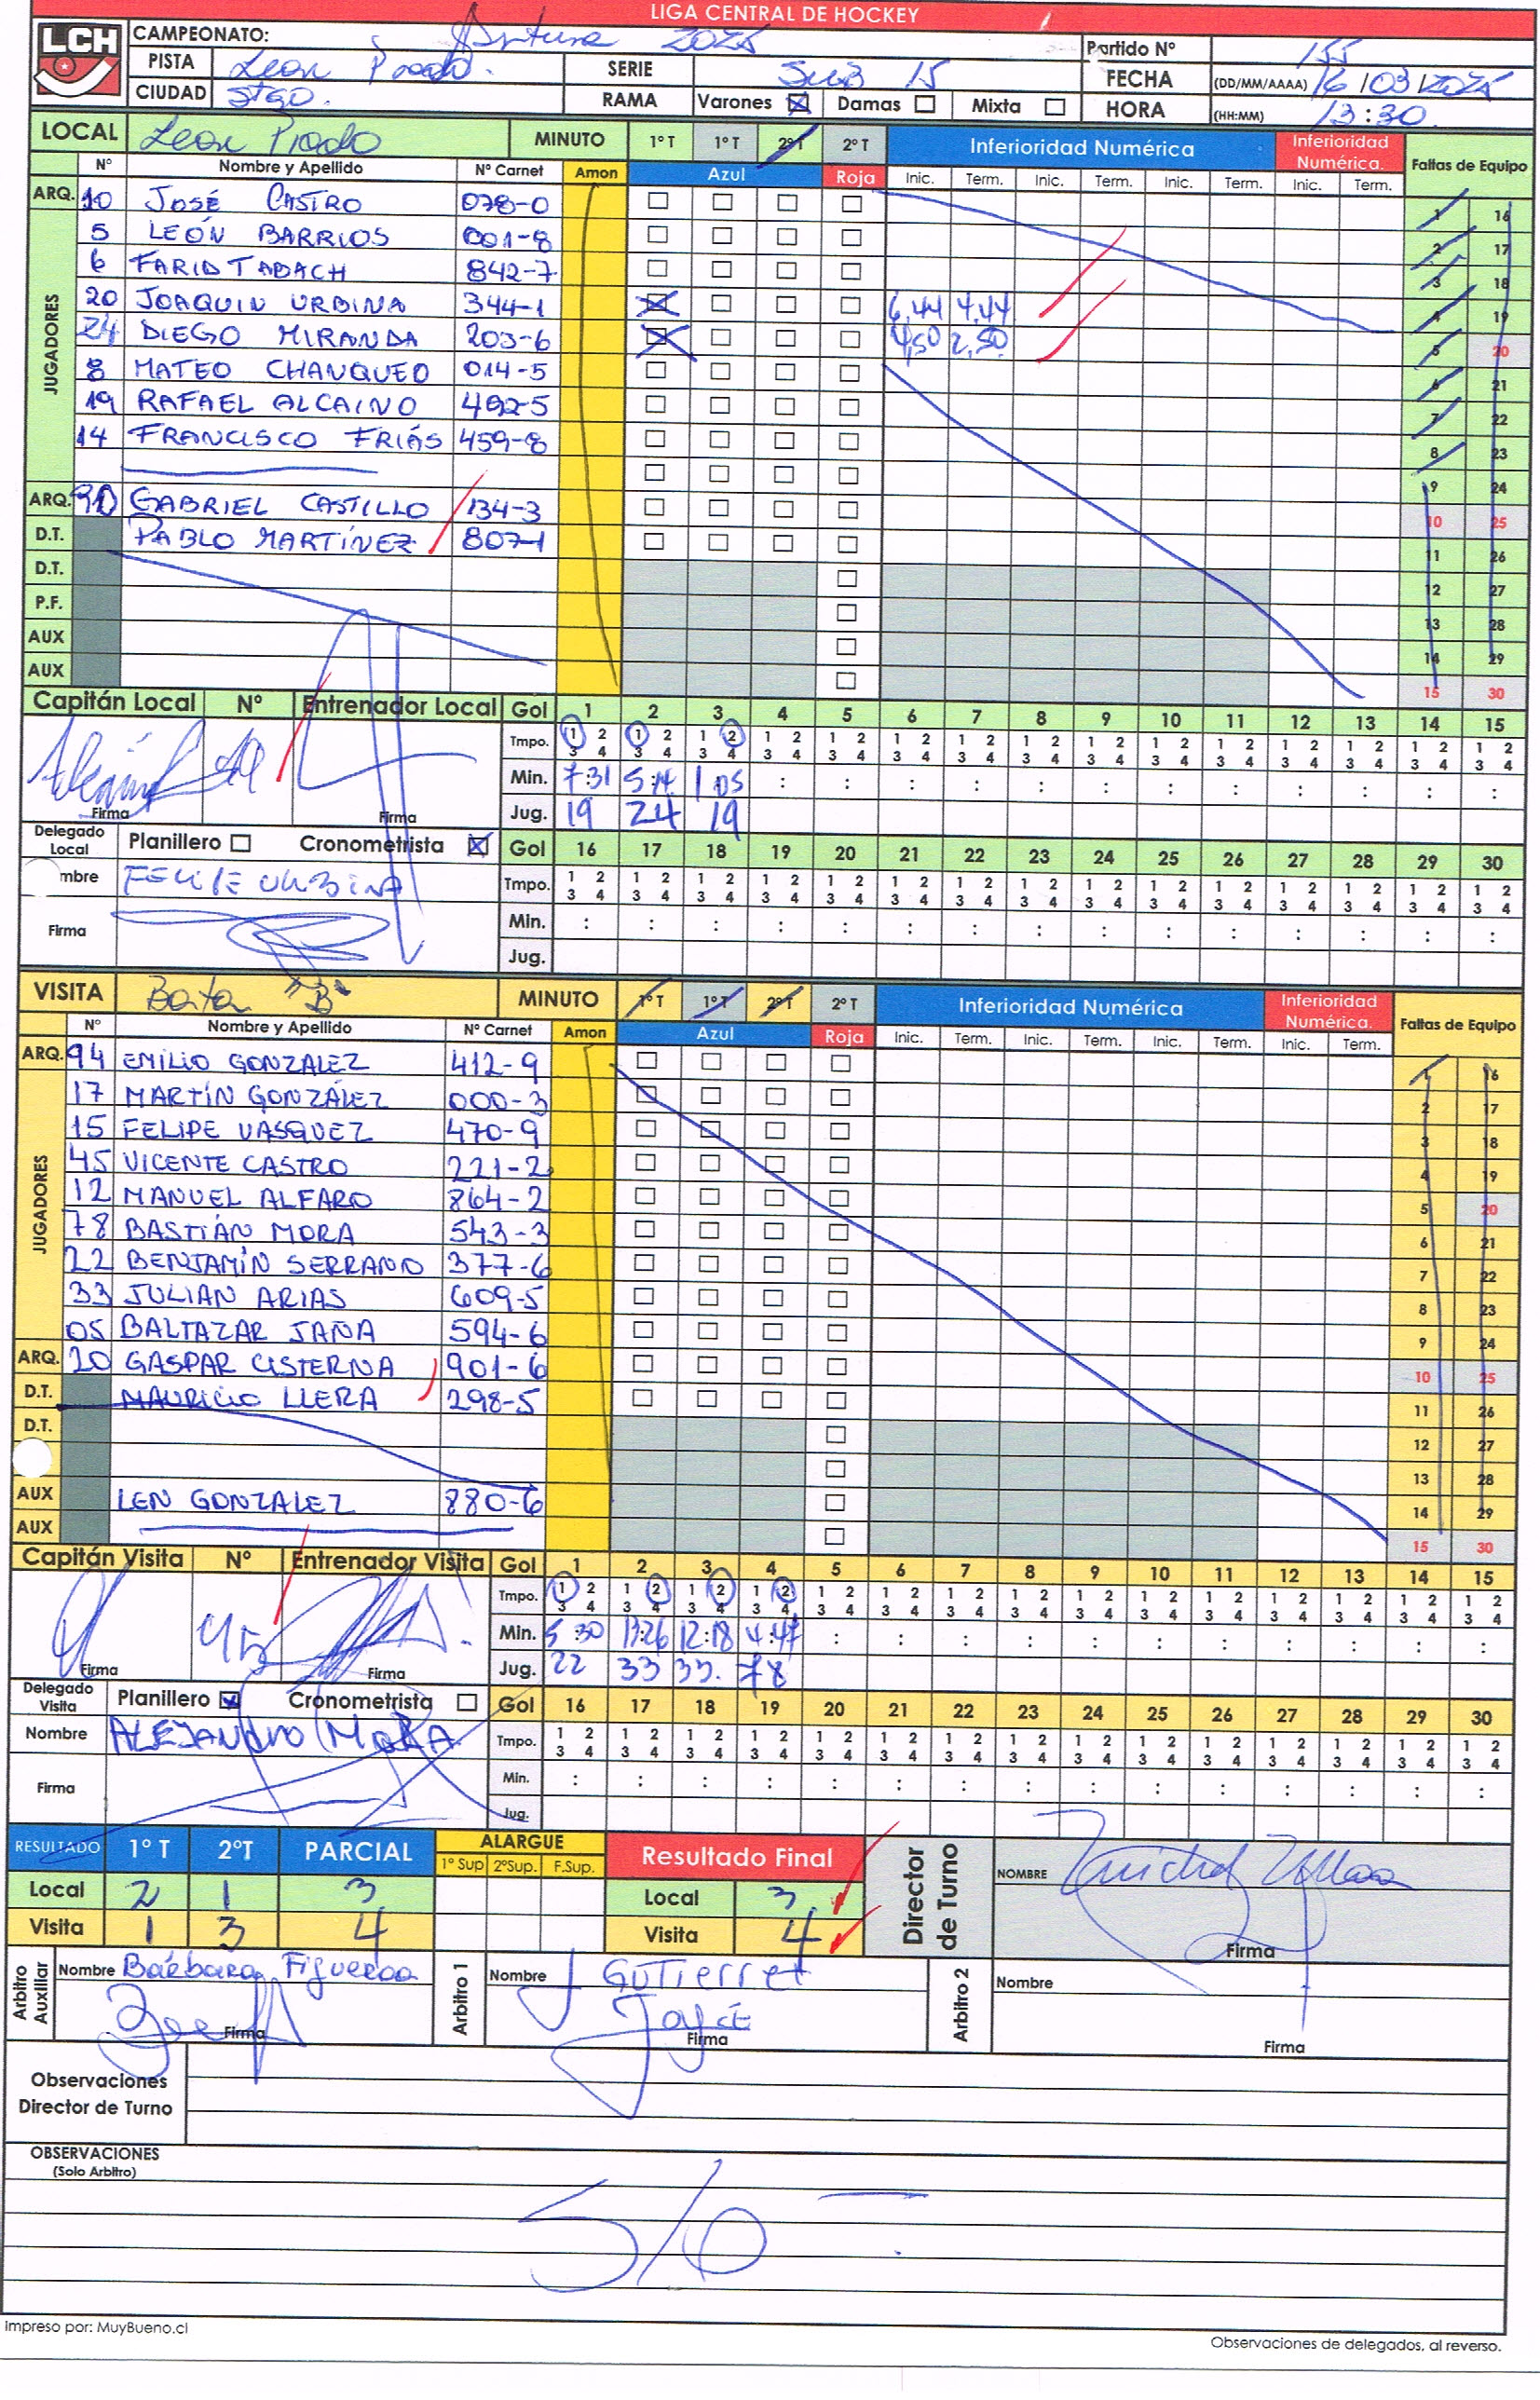 LIGA CENTRAL DE HOCKEY
LCH
CAMPEONATO: Apertura 2025
Partido Nº 155
PISTA Leon Prado.
SERIE SUB 15
FECHA (DD/MM/AAAA) 16/03/2025
CIUDAD Stgo.
RAMA Varones ☒ Damas ☐ Mixta ☐
HORA (HH:MM) 13:30
LOCAL Leon Prado MINUTO 1º T 1º T 2º T 2º T Inferioridad Numérica Inferioridad Numérica. Faltas de Equipo
Nº Nombre y Apellido Nº Carnet Amon Azul Roja Inic. Term. Inic. Term. Inic. Term. Inic. Term.
ARQ. 10 JOSÉ CASTRO 078-0 1 16
JUGADORES
5 LEÓN BARRIOS 001-8 2 17
6 FARID TABACH 842-7 3 18
20 JOAQUIN URBINA 344-1 6,44 4,44 4 19
24 DIEGO MIRANDA 203-6 4,50 2,50 5 20
8 MATEO CHANQUEO 014-5 6 21
19 RAFAEL ALCAINO 492-5 7 22
14 FRANCISCO FRIÁS 459-8 8 23
9 24
ARQ. 91 GABRIEL CASTILLO 134-3 10 25
D.T. PABLO MARTÍNEZ 807-1 11 26
D.T. 12 27
P.F. 13 28
AUX 14 29
AUX 15 30
Capitán Local Nº Entrenador Local Gol 1 2 3 4 5 6 7 8 9 10 11 12 13 14 15
Tmpo. 1 2 3 4 1 2 3 4 1 2 3 4 1 2 3 4 1 2 3 4 1 2 3 4 1 2 3 4 1 2 3 4 1 2 3 4 1 2 3 4 1 2 3 4 1 2 3 4 1 2 3 4 1 2 3 4 1 2 3 4
Min. 7:31 5:14 1:05 : : : : : : : : : : : :
Firma Firma Jug. 19 24 19
Delegado Local Planillero ☐ Cronometrista ☒ Gol 16 17 18 19 20 21 22 23 24 25 26 27 28 29 30
mbre FELIPE URBINA Tmpo. 1 2 3 4 1 2 3 4 1 2 3 4 1 2 3 4 1 2 3 4 1 2 3 4 1 2 3 4 1 2 3 4 1 2 3 4 1 2 3 4 1 2 3 4 1 2 3 4 1 2 3 4 1 2 3 4 1 2 3 4
Firma Min. : : : : : : : : : : : : : : :
Jug.
VISITA Bata "B" MINUTO 1º T 1º T 2º T 2º T Inferioridad Numérica Inferioridad Numérica. Faltas de Equipo
Nº Nombre y Apellido Nº Carnet Amon Azul Roja Inic. Term. Inic. Term. Inic. Term. Inic. Term.
ARQ. 94 EMILIO GONZALEZ 412-9 1 16
JUGADORES
17 MARTÍN GONZÁLEZ 000-3 2 17
15 FELIPE VASQUEZ 470-9 3 18
45 VICENTE CASTRO 221-2 4 19
12 MANUEL ALFARO 864-2 5 20
78 BASTIÁN MORA 543-3 6 21
22 BENJAMÍN SERRANO 377-6 7 22
33 JULIAN ARIAS 609-5 8 23
05 BALTAZAR JAÑA 594-6 9 24
ARQ. 20 GASPAR CISTERNA 901-6 10 25
D.T. MAURICIO LLERA 298-5 11 26
D.T. 12 27
13 28
AUX LEN GONZALEZ 880-6 14 29
AUX 15 30
Capitán Visita Nº Entrenador Visita Gol 1 2 3 4 5 6 7 8 9 10 11 12 13 14 15
Tmpo. 1 2 3 4 1 2 3 4 1 2 3 4 1 2 3 4 1 2 3 4 1 2 3 4 1 2 3 4 1 2 3 4 1 2 3 4 1 2 3 4 1 2 3 4 1 2 3 4 1 2 3 4 1 2 3 4 1 2 3 4
45 Min. 5:30 11:26 12:18 4:47 : : : : : : : : : : :
Firma Firma Jug. 22 33 33. 78
Delegado Visita Planillero ☒ Cronometrista ☐ Gol 16 17 18 19 20 21 22 23 24 25 26 27 28 29 30
Nombre ALEJANDRO MORA Tmpo. 1 2 3 4 1 2 3 4 1 2 3 4 1 2 3 4 1 2 3 4 1 2 3 4 1 2 3 4 1 2 3 4 1 2 3 4 1 2 3 4 1 2 3 4 1 2 3 4 1 2 3 4 1 2 3 4 1 2 3 4
Firma Min. : : : : : : : : : : : : : : :
Jug.
RESULTADO 1º T 2ºT PARCIAL ALARGUE 1º Sup 2ºSup. F.Sup. Resultado Final Director de Turno NOMBRE
Local 2 1 3 Local 3
Visita 1 3 4 Visita 4 Firma
Arbitro Auxiliar Nombre Bárbara Figueroa Arbitro 1 Nombre J Gutierrez Arbitro 2 Nombre
Firma Firma Firma
Observaciones
Director de Turno
OBSERVACIONES
(Solo Arbitro)
S/O
Impreso por: MuyBueno.cl
Observaciones de delegados, al reverso.